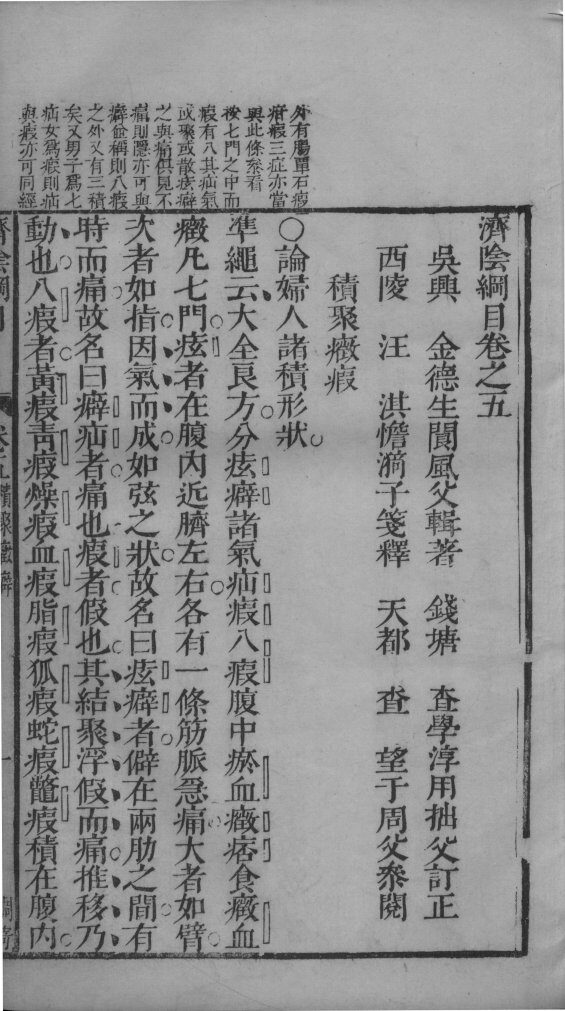 外有腸覃石瘕
疳瘕三症亦當
與此條叅看
按七門之中而
瘕有八其疝氣
或聚或散痃癖
之與痛俱見不
痛則隱亦可與
癖僉稱則八瘕
之外又有三積
矣又男子爲七
疝女爲瘕則疝
與瘕亦可同經
濟陰綱目卷之五
吳興 金德生閬風父輯著 錢塘 查學淳用拙父訂正
西陵 汪 淇憺漪子箋釋 天都 查 望于周父叅閱
積聚癥瘕
○論婦人諸積形狀
準繩云大全良方分痃癖諸氣疝瘕八瘕腹中瘀血癥痞食癥血
癥凡七門痃者在腹內近臍左右各有一條筋脈急痛大者如臂
次者如指因氣而成如弦之狀故名曰痃癖者僻在兩肋之間有
時而痛故名曰癖疝者痛也瘕者假也其結聚浮假而痛推移乃
動也八瘕者黃瘕青瘕燥瘕血瘕脂瘕狐瘕蛇瘕鼈瘕積在腹內